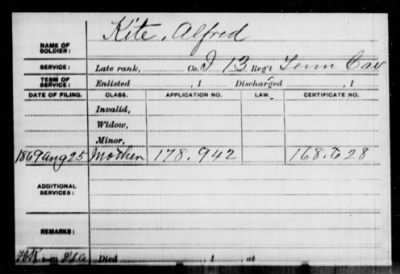 Kite, Alfred
NAME OF SOLDIER:
SERVICE: Late rank, Co. I 13 Reg't Tenn Cav
TERM OF SERVICE: Enlisted , 1 Discharged , 1
DATE OF FILING. CLASS. APPLICATION NO. LAW. CERTIFICATE NO.
Invalid,
Widow,
Minor,
1869 Aug 25 Mother 178.942 168.628
ADDITIONAL SERVICES:
REMARKS:
Died , 1 at